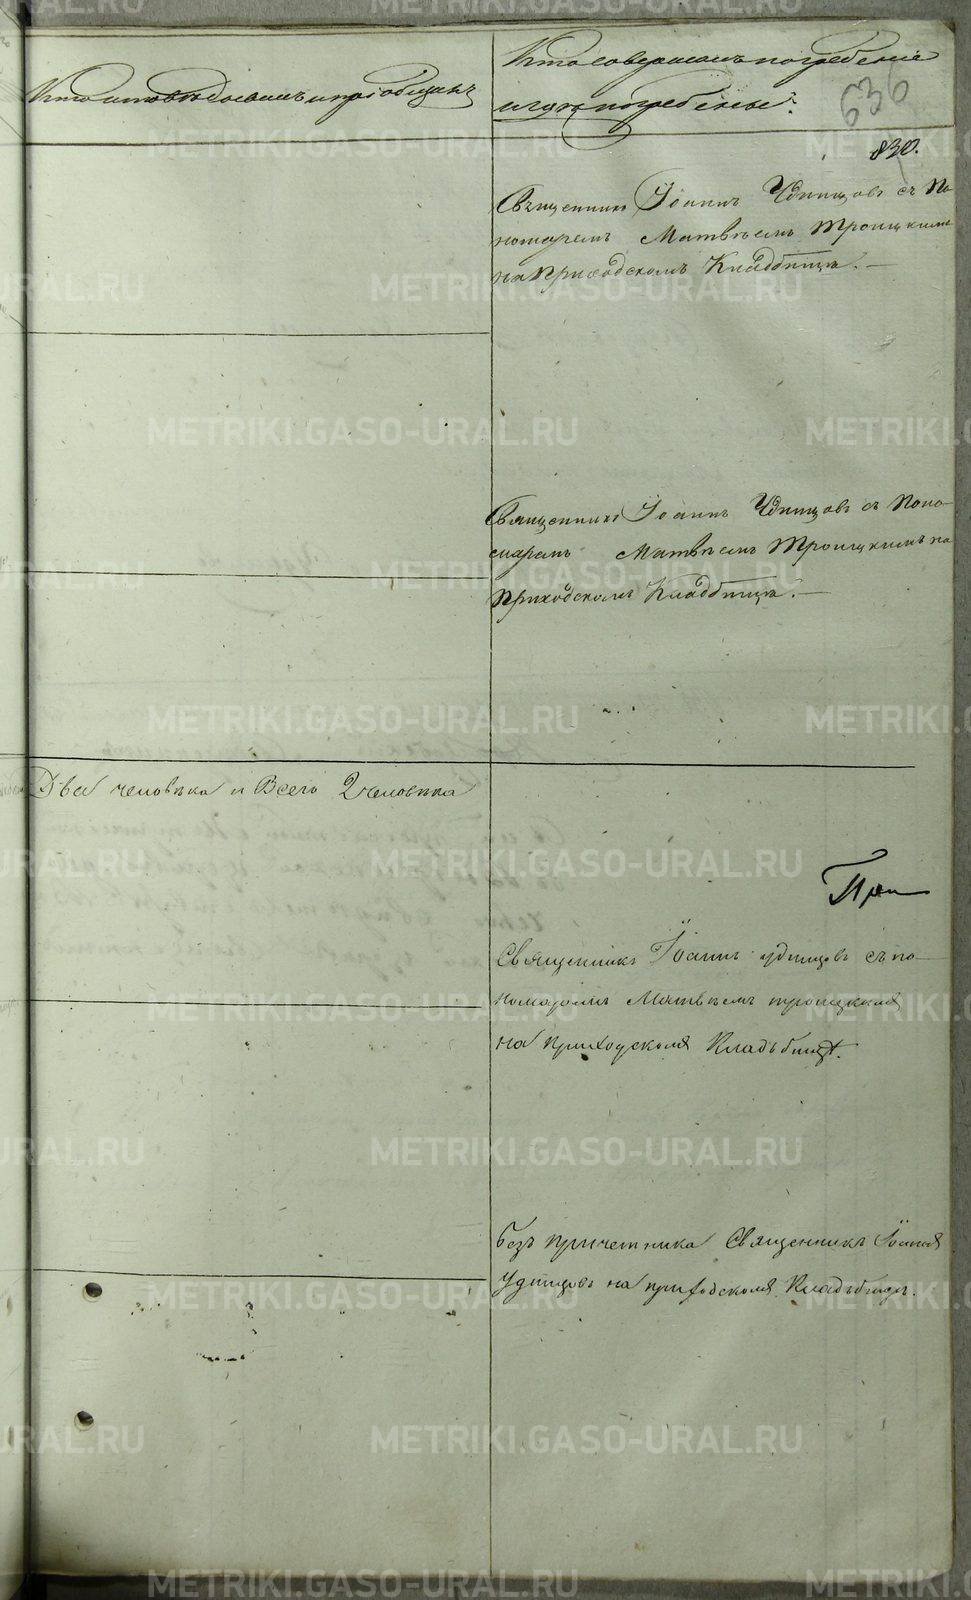 Кто исповѣдовалъ и пріобщалъ
Кто совершалъ погребеніе
и гдѣ погребены?
636
830.
Священникъ Іоаннъ Удинцовъ съ По
номаремъ Матвѣемъ Троицкимъ
на Приходскомъ Кладбищѣ. —
Священникъ Іоаннъ Удинцовъ съ Поно-
маремъ Матвѣемъ Троицкимъ на
Приходскомъ Кладбищѣ. —
Два человѣка и Всего 2 человѣка
При
Священникъ Іоаннъ Удинцовъ съ по-
номаромъ Матвѣемъ троицкимъ
на приходскомъ Кладъбищѣ.
безъ причетника Священникъ Іоаннъ
Удинцовъ на приходскомъ Кладъбищѣ.
METRIKI.GASO-URAL.RU